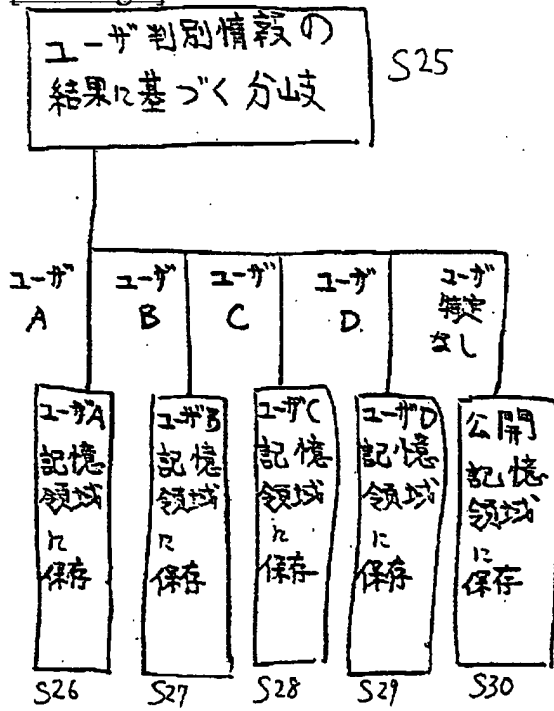 ユーザ判別情報の
結果に基づく分岐
S25
ユーザ
A
ユーザ
B
ユーザ
C
ユーザ
D
ユーザ
特定
なし
ユーザA
記憶
領域
に
保存
ユーザB
記憶
領域
に
保存
ユーザC
記憶
領域
に
保存
ユーザD
記憶
領域
に
保存
公開
記憶
領域
に
保存
S26
S27
S28
S29
S30